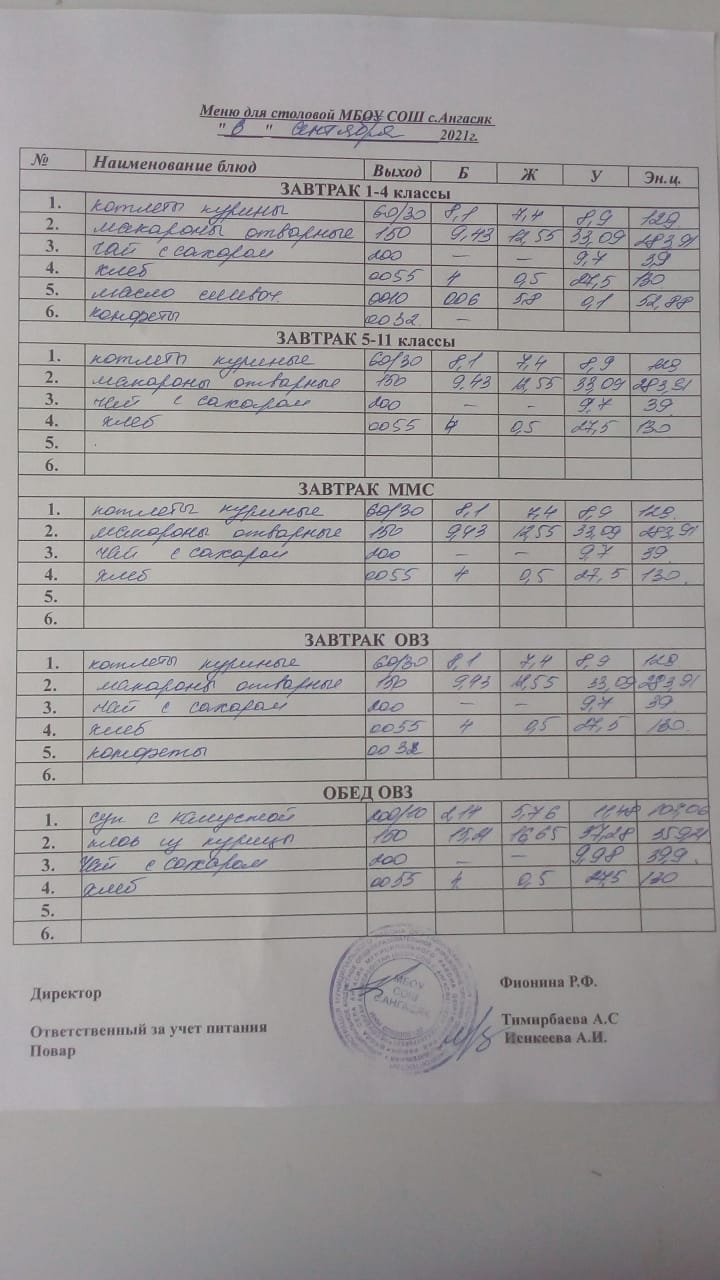 Меню для столовой МБОУ СОШ с.Ангасяк
" 8 " сентября 2021г.
№ Наименование блюд Выход Б Ж У Эн.ц.
ЗАВТРАК 1-4 классы
1. котлеты курины 60/30 8,1 7,4 8,9 129
2. макароны отварные 150 9,43 12,55 33,09 283,91
3. чай с сахаром 200 — — 9,7 39
4. хлеб 0055 4 0,5 27,5 130
5. масло сливоч. 0010 006 58 0,1 52,88
6. конфеты 0032 —
ЗАВТРАК 5-11 классы
1. котлеты куриные 60/30 8,1 7,4 8,9 129
2. макароны отварные 150 9,43 12,55 33,09 283,91
3. чай с сахаром 200 — - 9,7 39
4. хлеб 0055 4 0,5 27,5 130
5.
6.
ЗАВТРАК ММС
1. котлеты куриные 60/30 8,1 7,4 8,9 129
2. макароны отварные 150 9,43 12,55 33,09 283,91
3. чай с сахаром 200 — — 9,7 39
4. хлеб 0055 4 0,5 27,5 130
5.
6.
ЗАВТРАК ОВЗ
1. котлеты куриные 60/30 8,1 7,4 8,9 128
2. макароны отварные 150 9,43 12,55 33,09 283,91
3. чай с сахаром 200 — — 9,7 39
4. хлеб 0055 4 0,5 27,5 130
5. конфеты 0032
6.
ОБЕД ОВЗ
1. суп с капустой 200/10 2,17 5,76
2. плов из курицы 150 15,21 16,65 37,28
3. Чай с сахаром 200 — — 9,98 39,9
4. хлеб 0055 4 0,5 27,5 130
5.
6.
МБОУ
СОШ
С.АНГАСЯК
Директор Фионина Р.Ф.
Ответственный за учет питания Тимирбаева А.С
Повар Исикеева А.И.